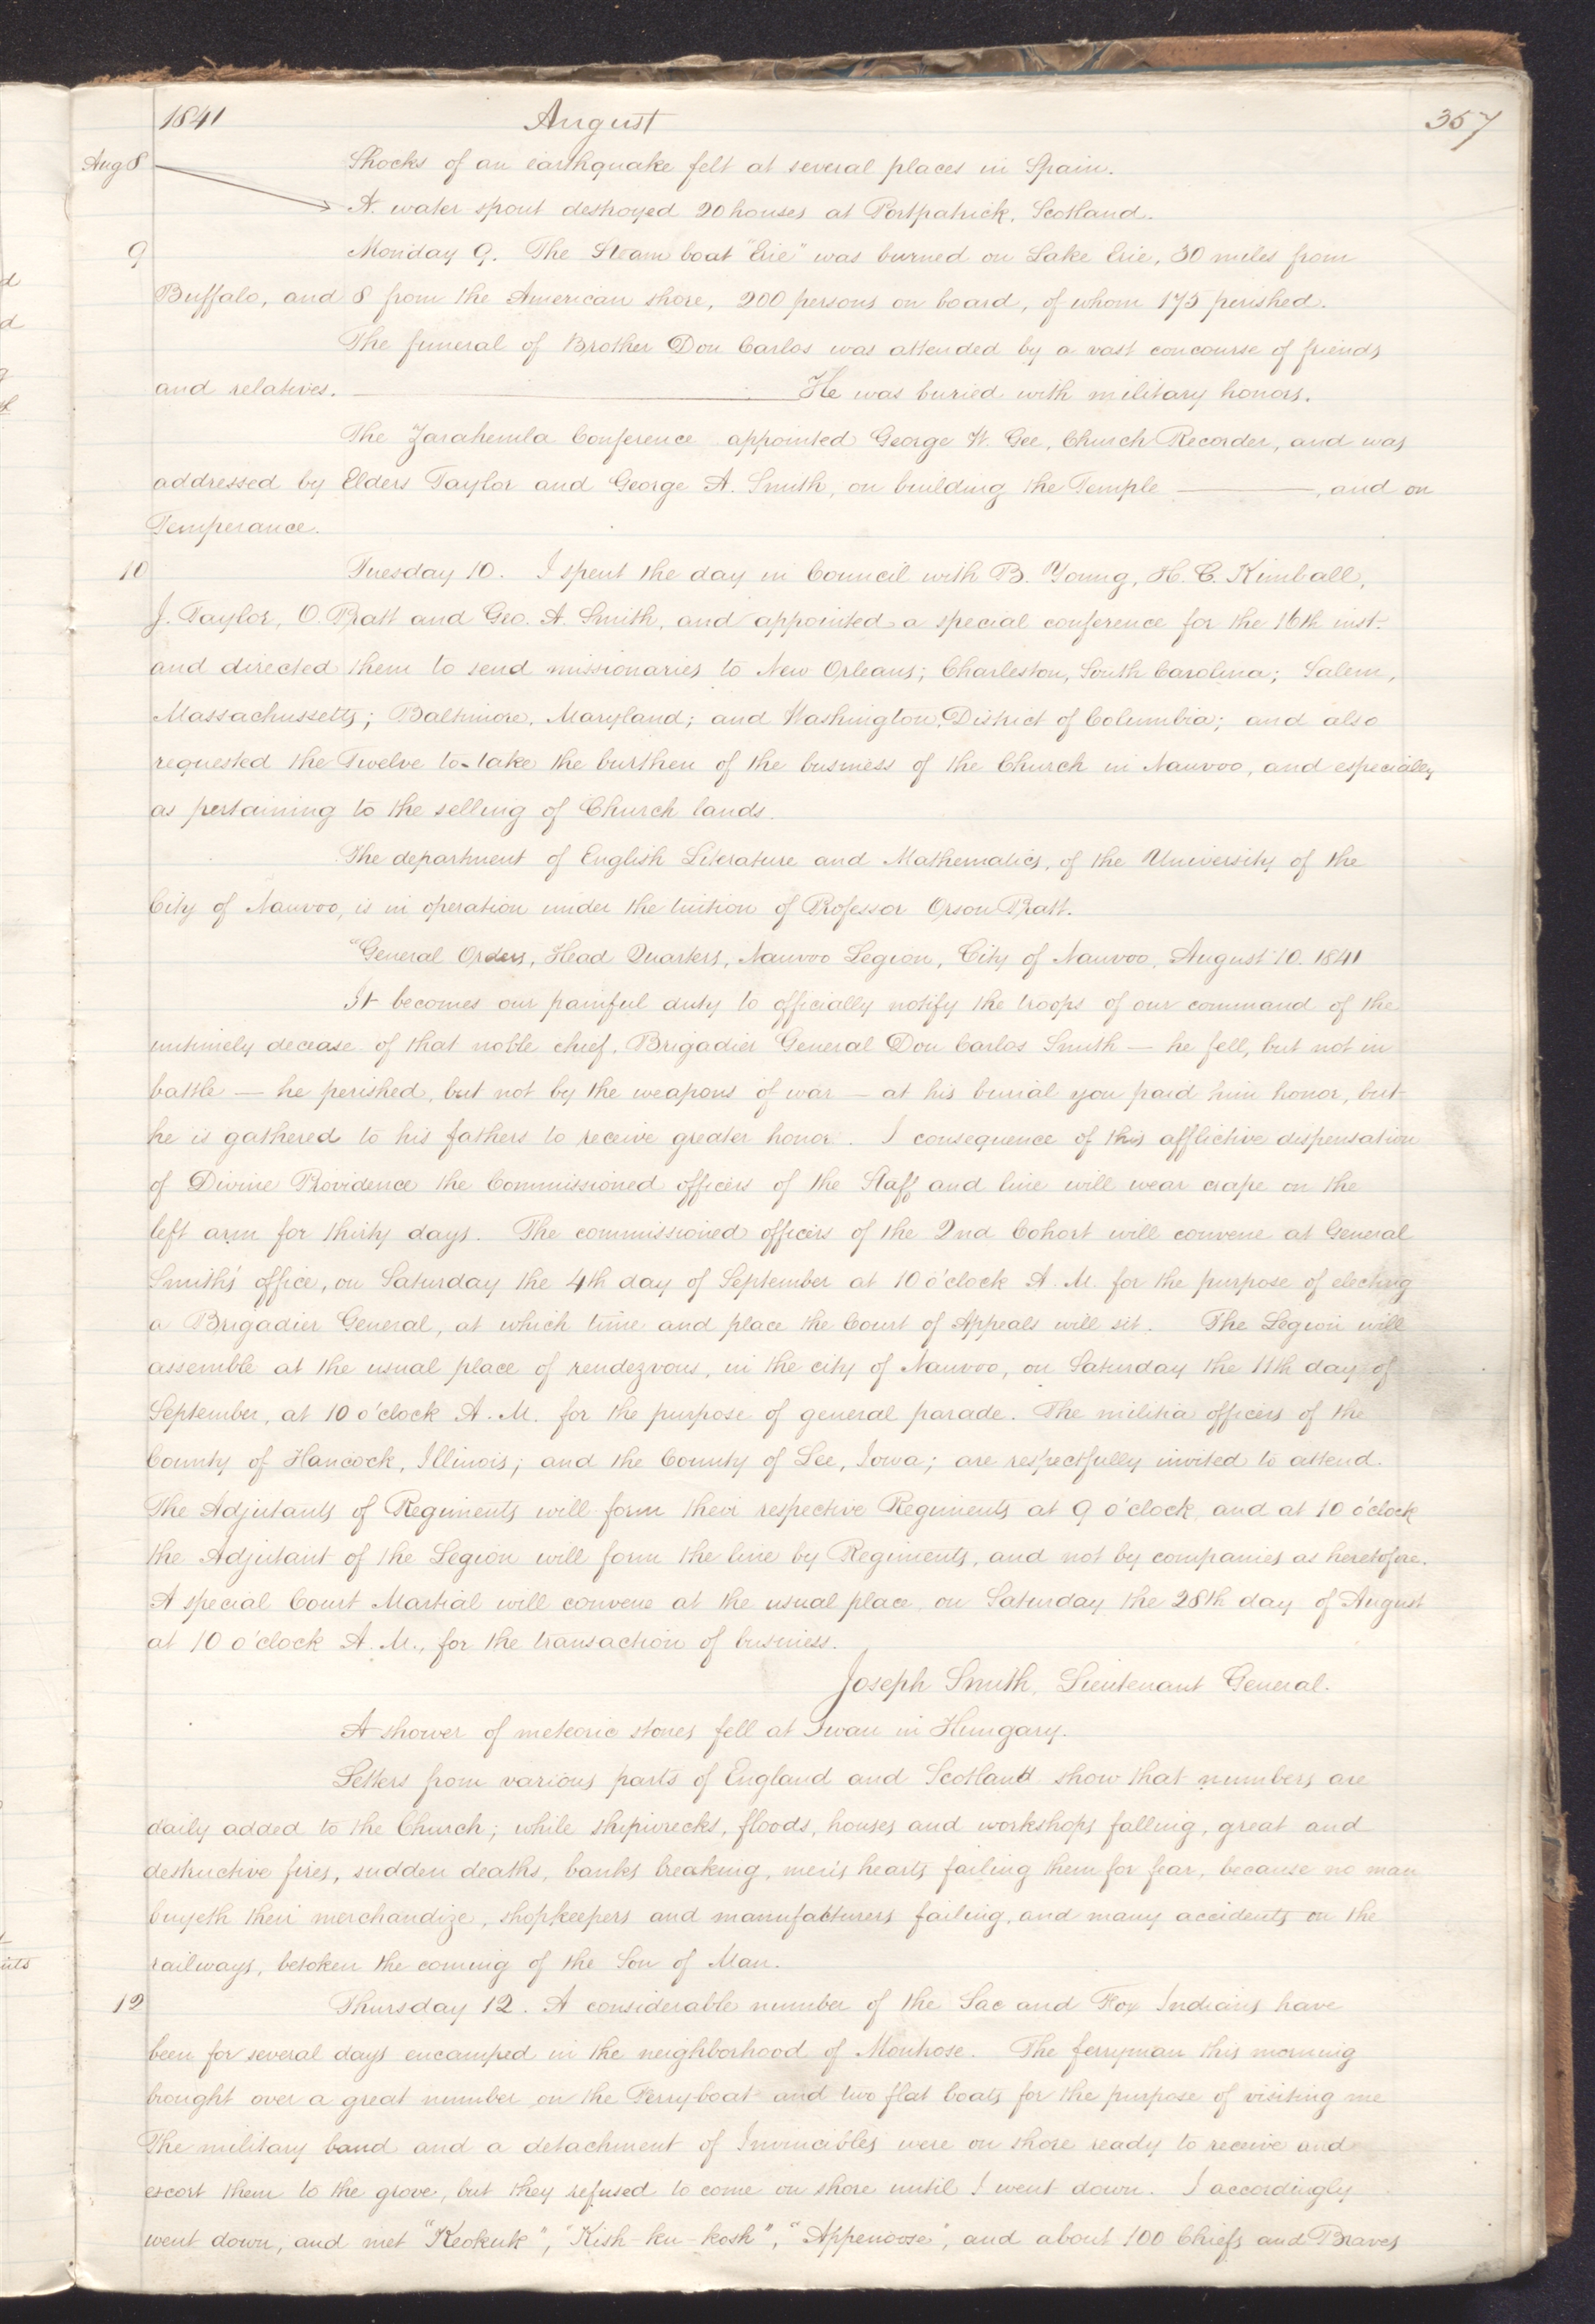 1841 August 357
Aug 8 Shocks of an earthquake felt at several places in Spain.
A water spout destroyed 20 houses at Portpatrick, Scotland.
9 Monday 9. The Steam boat "Erie" was burned on Lake Erie, 30 miles from
Buffalo, and 8 from the American shore, 200 persons on board, of whom 175 perished.
The funeral of Brother Don Carlos was attended by a vast concourse of friends
and relatives. ——— He was buried with military honors.
The Zarahemla Conference appointed George W. Gee, Church Recorder, and was
addressed by Elders Taylor and George A. Smith, on building the Temple ———, and on
Temperance.
10 Tuesday 10. I spent the day in Council with B. Young, H. C. Kimball,
J. Taylor, O. Pratt and Geo. A. Smith, and appointed a special conference for the 16th inst.
and directed them to send missionaries to New Orleans; Charleston, South Carolina; Salem,
Massachussetts; Baltimore, Maryland; and Washington, District of Columbia; and also
requested the Twelve to take the burthen of the business of the Church in Nauvoo, and especially
as pertaining to the selling of Church lands.
The department of English Literature and Mathematics, of the University of the
City of Nauvoo, is in operation under the tuition of Professor Orson Pratt.
"General Orders, Head Quarters, Nauvoo Legion, City of Nauvoo, August 10. 1841
It becomes our painful duty to officially notify the troops of our command of the
untimely decease of that noble chief, Brigadier General Don Carlos Smith — he fell, but not in
battle — he perished, but not by the weapons of war — at his burial you paid him honor, but
he is gathered to his fathers to receive greater honor. I consequence of this afflictive dispensation
of Divine Providence the Commissioned officers of the Staff and line will wear crape on the
left arm for thirty days. The commissioned officers of the 2nd Cohort will convene at General
Smith's office, on Saturday the 4th day of September at 10 o'clock A. M. for the purpose of electing
a Brigadier General, at which time and place the Court of Appeals will sit. The Legion will
assemble at the usual place of rendezvous, in the city of Nauvoo, on Saturday the 11th day of
September, at 10 o'clock A. M. for the purpose of general parade. The militia officers of the
County of Hancock, Illinois; and the County of Lee, Iowa; are respectfully invited to attend.
The Adjutants of Regiments will form their respective Regiments at 9 o'clock, and at 10 o'clock
the Adjutant of the Legion will form the line by Regiments, and not by companies as heretofore.
A special Court Martial will convene at the usual place, on Saturday the 28th day of August
at 10 o'clock A. M., for the transaction of business.
Joseph Smith, Lieutenant General.
A shower of meteoric stones fell at Iwan in Hungary.
Letters from various parts of England and Scotland show that numbers are
daily added to the Church; while shipwrecks, floods, houses and workshops falling, great and
destructive fires, sudden deaths, banks breaking, men's hearts failing them for fear, because no man
buyeth their merchandize, shopkeepers and manufacturers failing, and many accidents on the
railways, betoken the coming of the Son of Man.
12 Thursday 12. A considerable number of the Sac and Fox Indians have
been for several days encamped in the neighborhood of Montrose. The ferryman this morning
brought over a great number on the Ferry-boat and two flat boats for the purpose of visiting me
The military band and a detachment of Invincibles were on shore ready to receive and
escort them to the grove, but they refused to come on shore until I went down. I accordingly
went down, and met "Keokuk", "Kish-ku-kosh", "Appenoose", and about 100 Chiefs and Braves